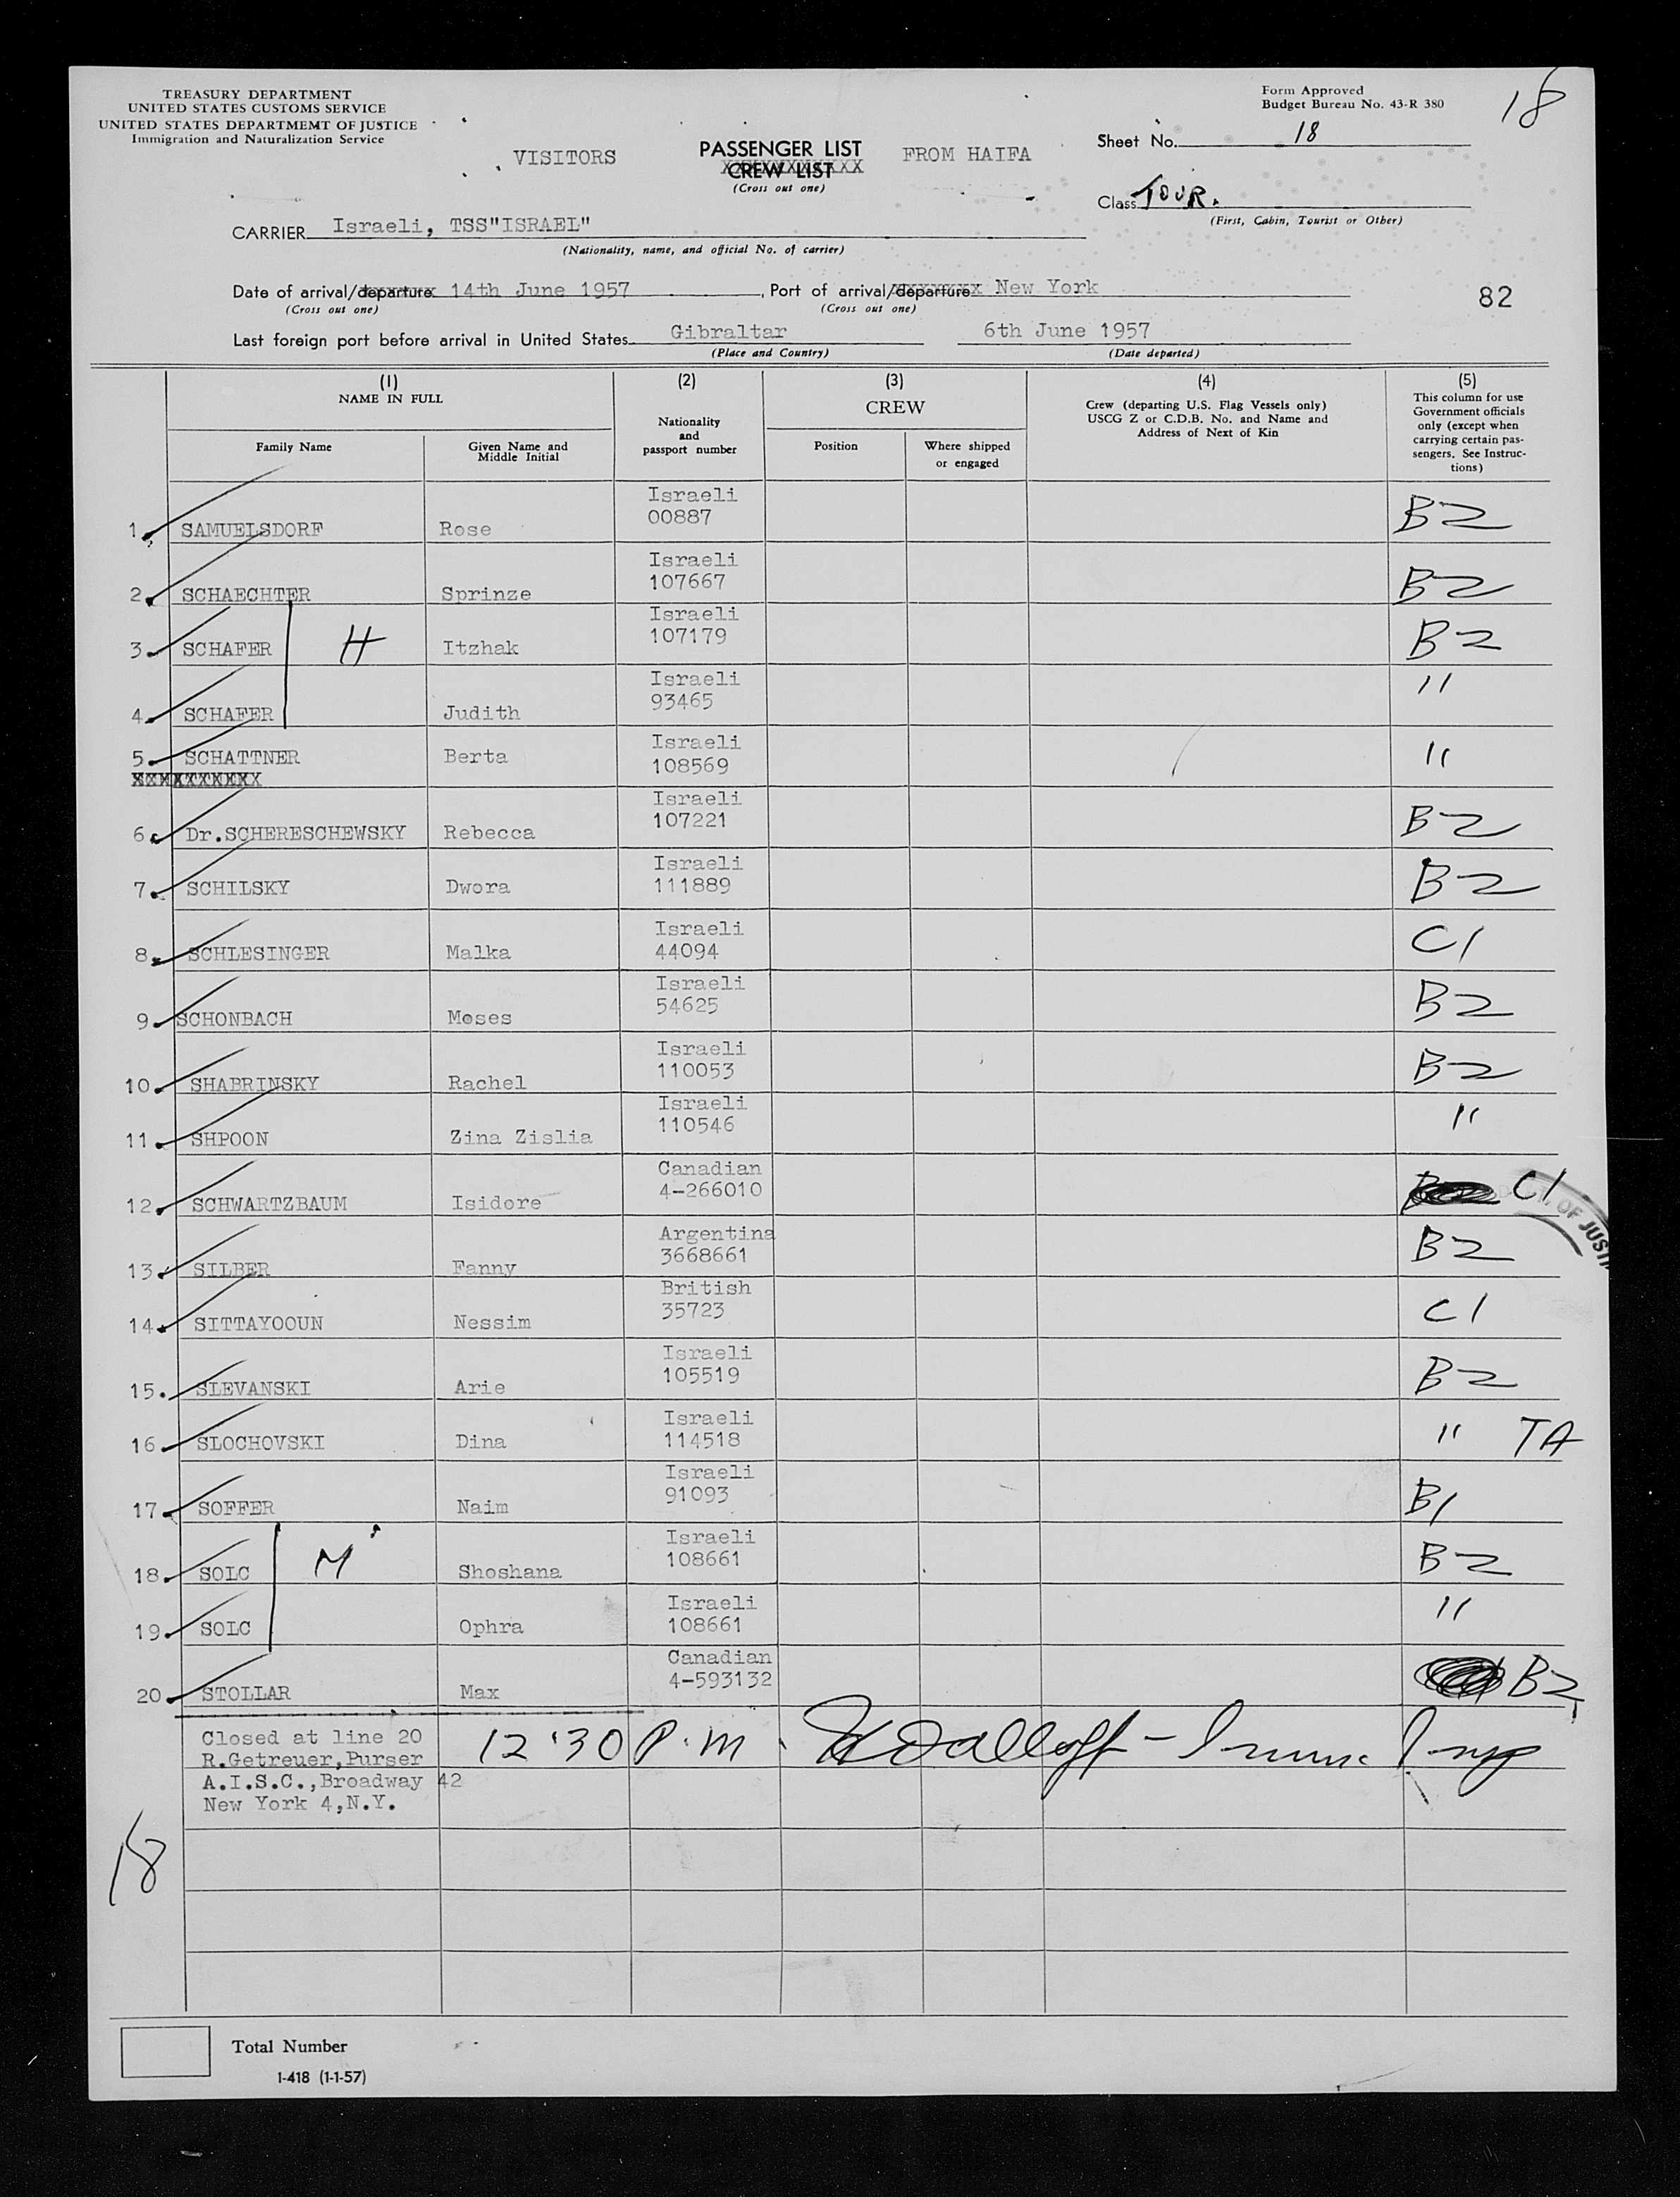 TREASURY DEPARTMENT
UNITED STATES CUSTOMS SERVICE
UNITED STATES DEPARTMEMT OF JUSTICE
Immigration and Naturalization Service
Form Approved
Budget Bureau No. 43-R 380
18
VISITORS
PASSENGER LIST
FROM HAIFA
CREW LIST
(Cross out one)
Sheet No. 18
Class TOUR.
(First, Cabin, Tourist or Other)
CARRIER Israeli, TSS"ISRAEL"
(Nationality, name, and official No. of carrier)
Date of arrival/departure 14th June 1957, Port of arrival/departure New York
(Cross out one) (Cross out one)
82
Last foreign port before arrival in United States Gibraltar 6th June 1957
(Place and Country) (Date departed)
(1) (2) (3) (4) (5)
NAME IN FULL
Family Name
Given Name and
Middle Initial
Nationality
and
passport number
CREW
Position
Where shipped
or engaged
Crew (departing U.S. Flag Vessels only)
USCG Z or C.D.B. No. and Name and
Address of Next of Kin
This column for use
Government officials
only (except when
carrying certain pas-
sengers. See Instruc-
tions)
1. SAMUELSDORF Rose Israeli 00887 B2
2. SCHAECHTER Sprinze Israeli 107667 B2
3. SCHAFER H Itzhak Israeli 107179 B2
4. SCHAFER Judith Israeli 93465 "
5. SCHATTNER Berta Israeli 108569 "
6. Dr.SCHERESCHEWSKY Rebecca Israeli 107221 B2
7. SCHILSKY Dwora Israeli 111889 B2
8. SCHLESINGER Malka Israeli 44094 C1
9. SCHONBACH Moses Israeli 54625 B2
10. SHABRINSKY Rachel Israeli 110053 B2
11. SHPOON Zina Zislia Israeli 110546 "
12. SCHWARTZBAUM Isidore Canadian 4-266010 C1
OF JUSTI
13. SILBER Fanny Argentina 3668661 B2
14. SITTAYOOUN Nessim British 35723 C1
15. SLEVANSKI Arie Israeli 105519 B2
16. SLOCHOVSKI Dina Israeli 114518 " TA
17. SOFFER Naim Israeli 91093 B1
18. SOLC M Shoshana Israeli 108661 B2
19. SOLC Ophra Israeli 108661 "
20. STOLLAR Max Canadian 4-593132 B2
Closed at line 20
R.Getreuer,Purser
A.I.S.C.,Broadway 42
New York 4,N.Y.
12:30 P.M.
18
Total Number
I-418 (1-1-57)